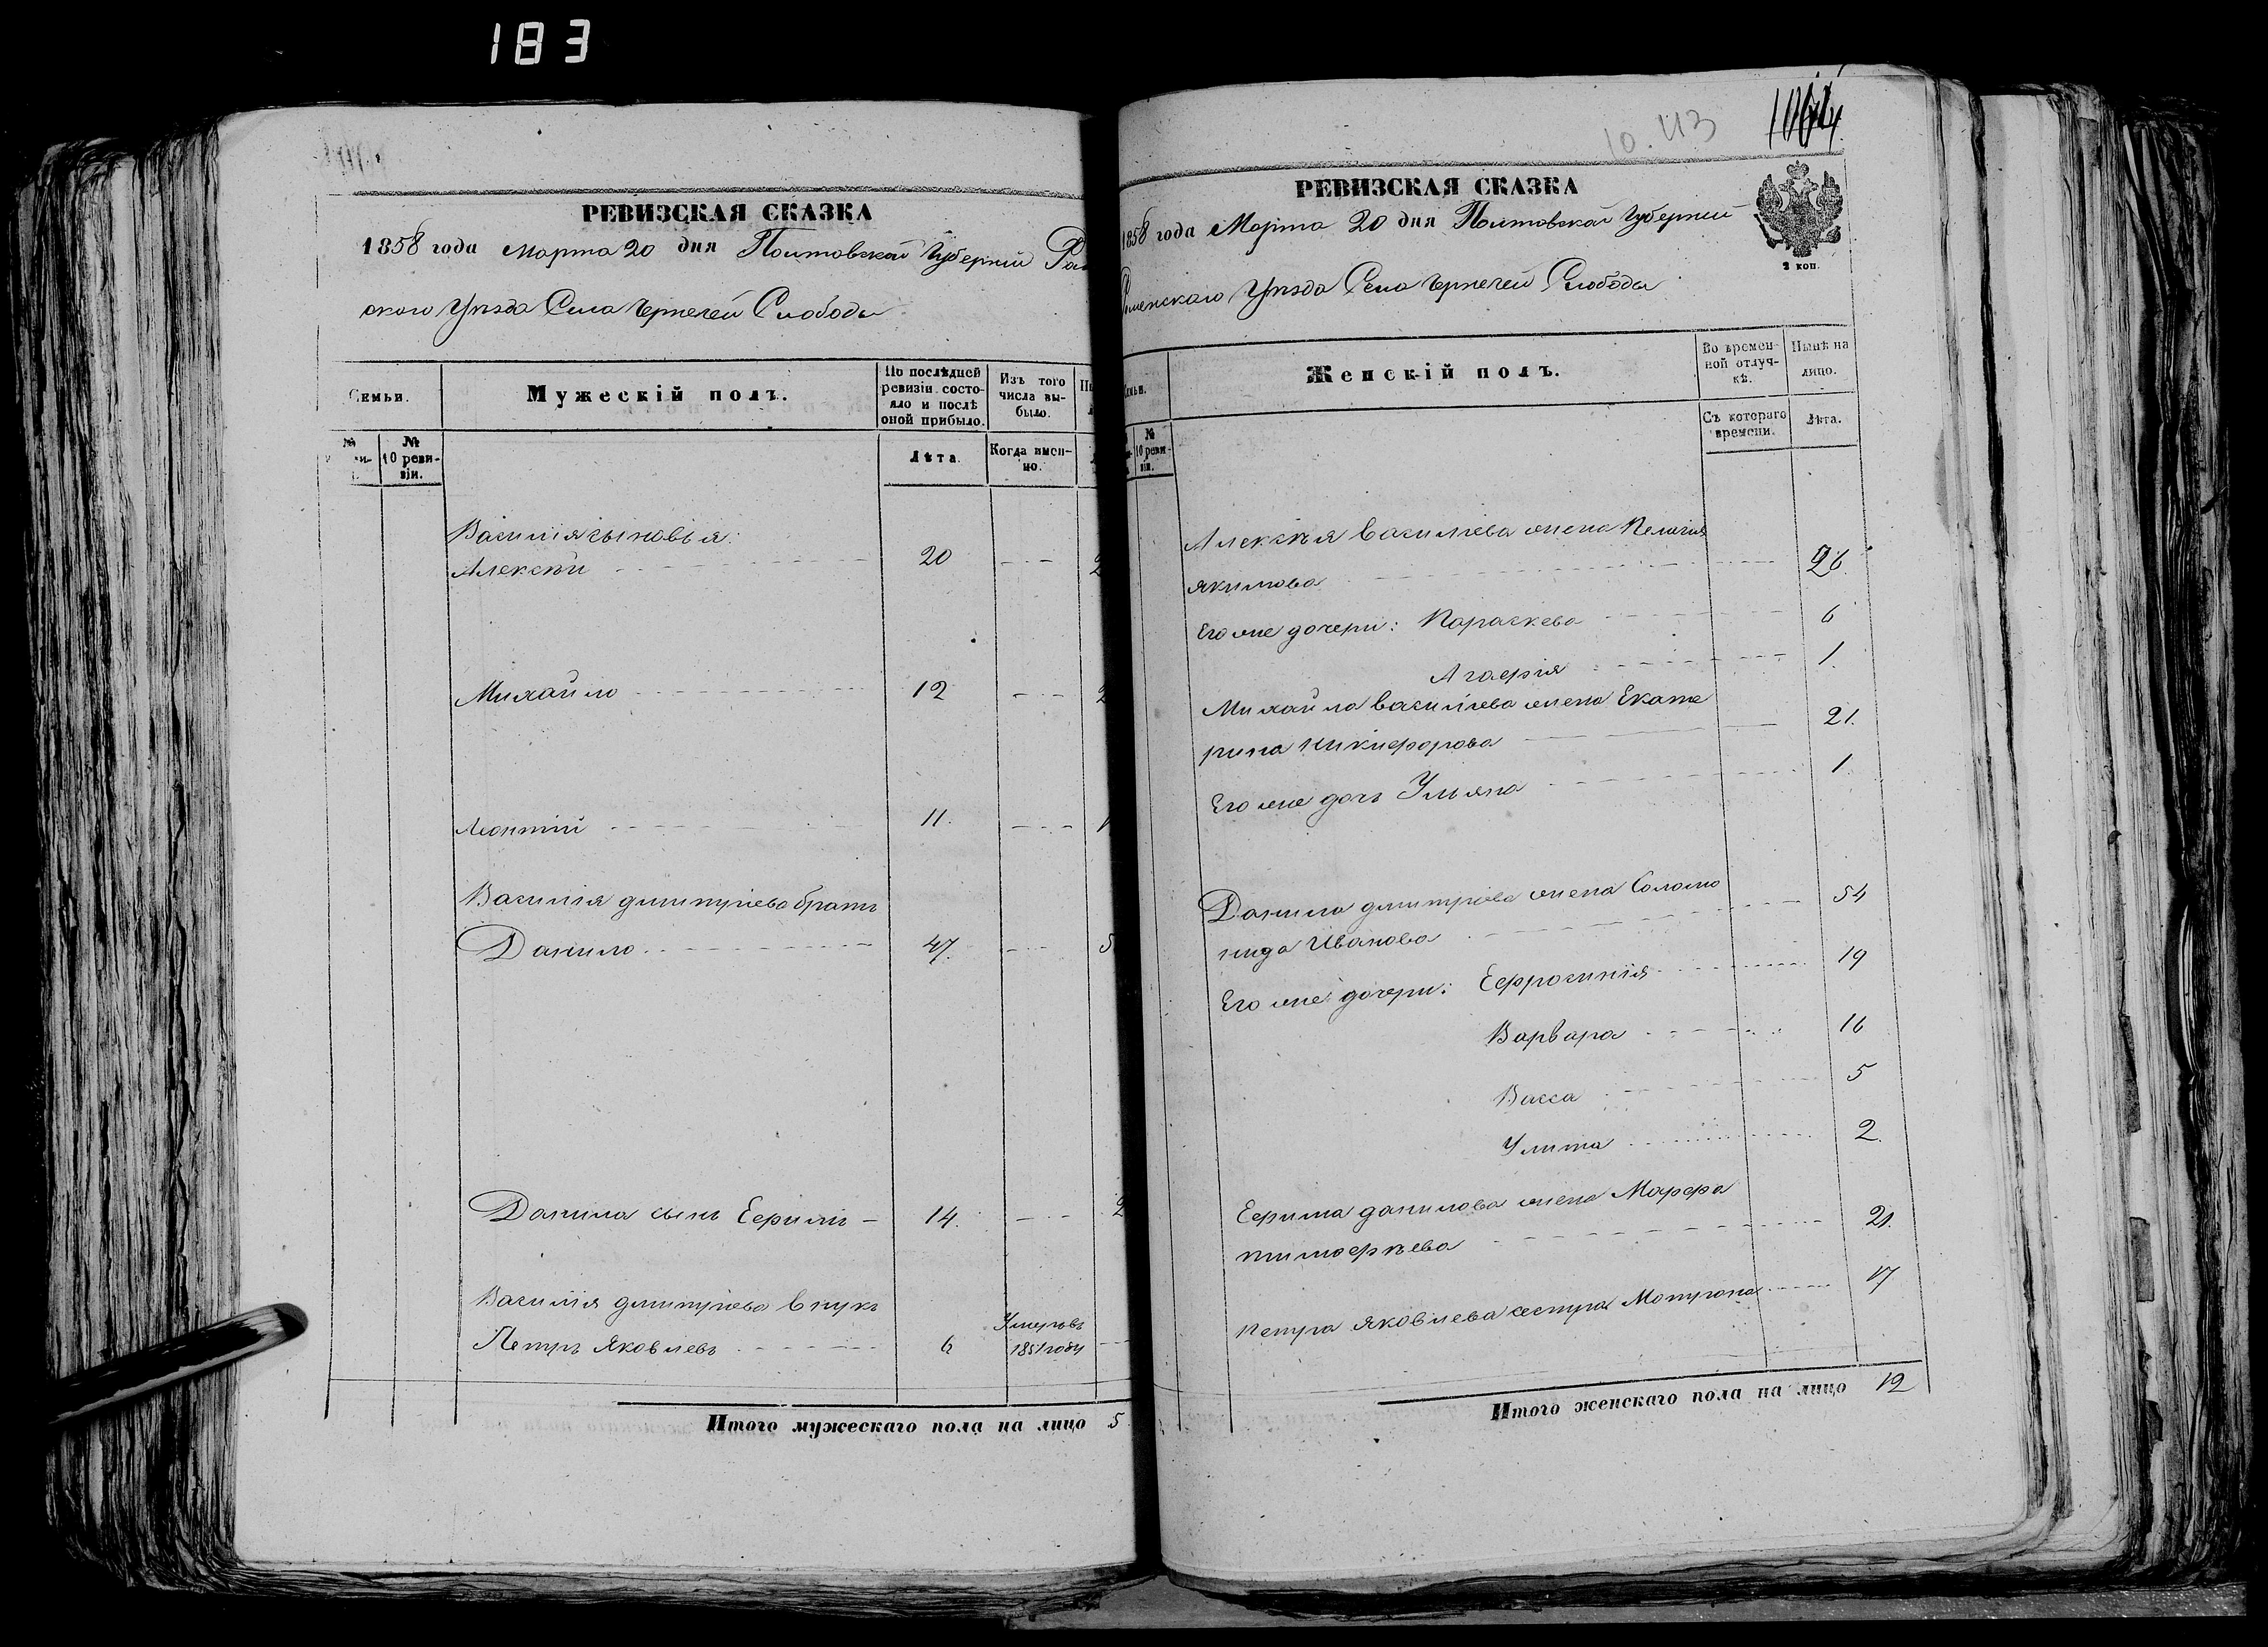 183
РЕВИЗСКАЯ СКАЗКА
1858 года Марта 20 дня Полтавской Губерніи Ро
скаго Уѣзда Села Чернечей Слободы
Семьи.
Мужескій полъ.
По послѣдней ревизіи состояло и послѣ оной прибыло.
Изъ того числа выбыло.
№
№ 10 ревизіи.
Лѣта.
Когда именно.
Василія сыновья:
Алексѣй 20
Михайло 12
Леонтій 11
Василія Дмитріева братъ
Данило 47
Данила сынъ Ефримъ 14
Василія Дмитріева внукъ
Умеръ въ
Петръ Яковлевъ 6 1851 году
Итого мужескаго пола на лицо 5
10.113
РЕВИЗСКАЯ СКАЗКА
1858 года Марта 20 дня Полтавской Губерніи
2 коп.
Роменскаго Уѣзда Села Чернечей Слободы
Женскій полъ.
Во временной отлучкѣ.
Нынѣ на лицо.
№ 10 ревизіи.
Съ котораго времени.
Лѣта.
Алексѣя Василіева жена Пелагія
Якимова 26
Его же дочери: Параскева 6
Агафія 1
Михайла Василіева жена Екате
рина Никифорова 21
Его же дочь Ульяна 1
Данила Дмитріева жена Соломо
нида Иванова 54
Его же дочери: Ефросинія 19
Варвара 16
Васса 5
Улита 2
Ефрима Данилова жена Марфа
Тимофѣева 21
Петра Яковлева сестра Мотрона 17
Итого женскаго пола на лицо 12